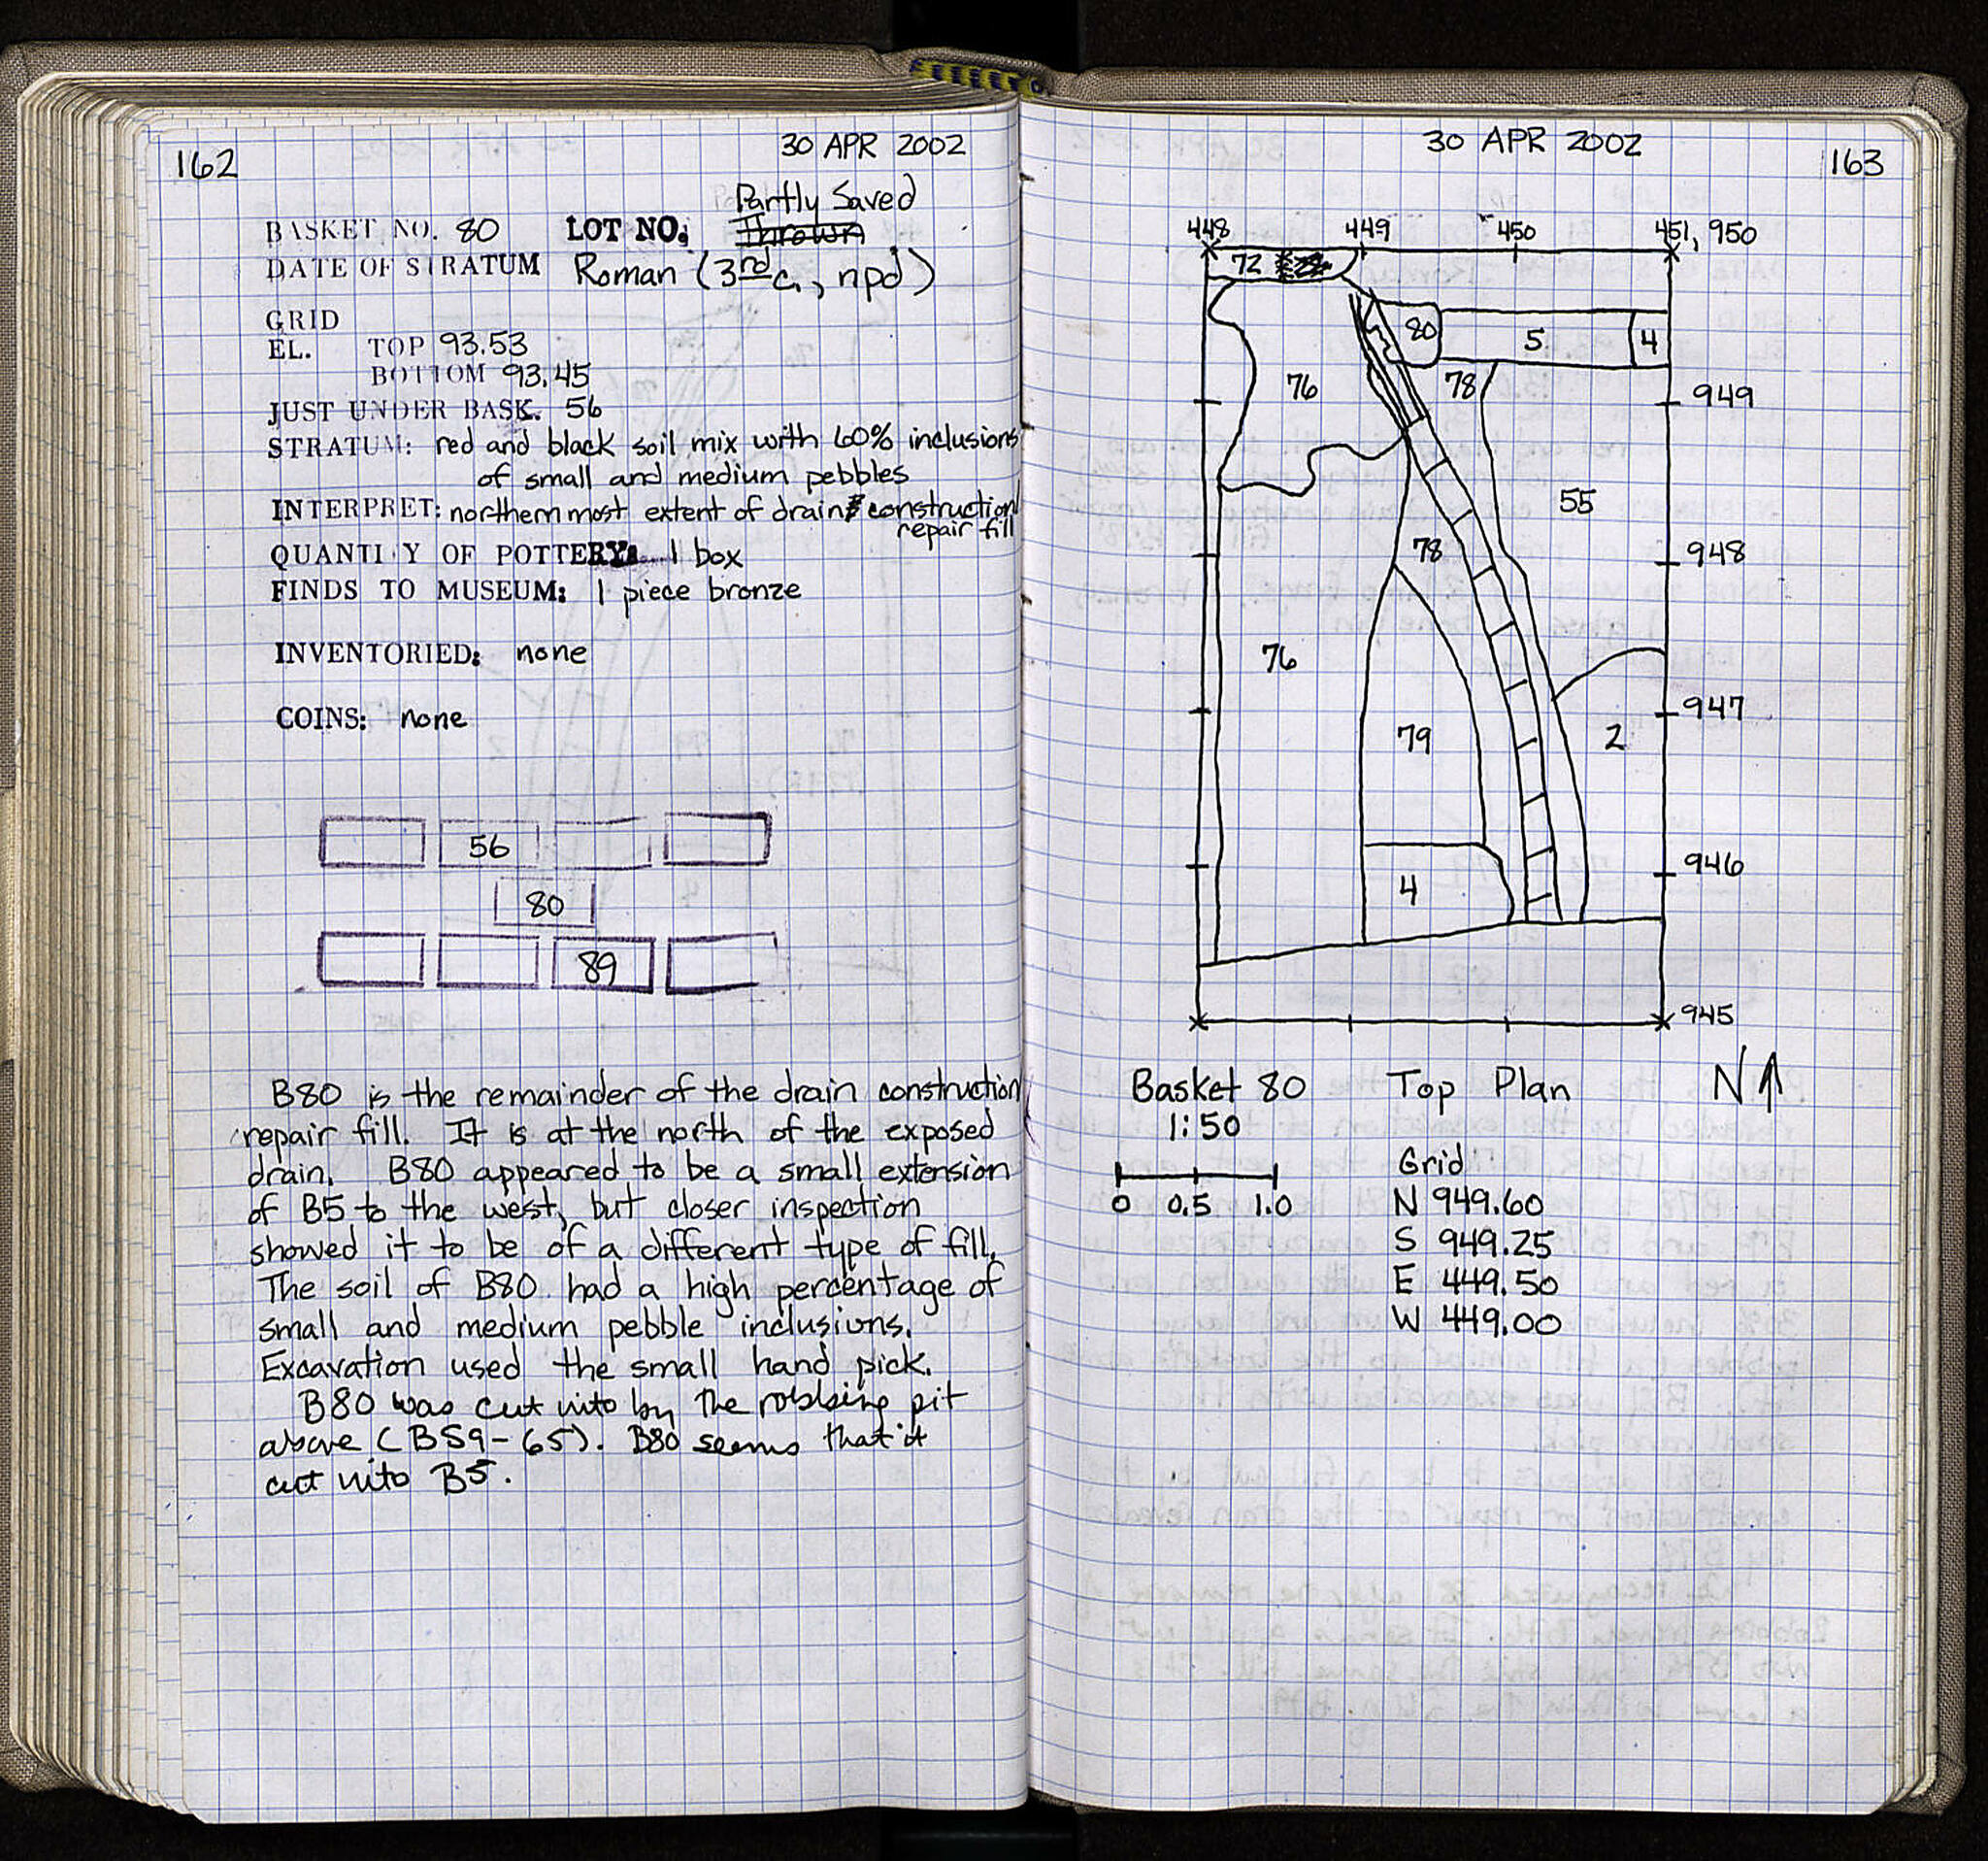 162
30 APR 2002
Partly Saved
BASKET NO. 80 LOT NO. Thrown
DATE OF STRATUM Roman (3rd c., npd)
GRID
EL. TOP 93.53
BOTTOM 93.45
JUST UNDER BASK. 56
STRATUM: red and black soil mix with 60% inclusions
of small and medium pebbles
INTERPRET: northern most extent of drain construction
repair fill
QUANTITY OF POTTERY: 1 box
FINDS TO MUSEUM: 1 piece bronze
INVENTORIED: none
COINS: none
56
80
89
B80 is the remainder of the drain construction
repair fill. It is at the north of the exposed
drain. B80 appeared to be a small extension
of B5 to the west, but closer inspection
showed it to be of a different type of fill.
The soil of B80 had a high percentage of
small and medium pebble inclusions.
Excavation used the small hand pick.
B80 was cut into by the robbing pit
above (B59-65). B80 seems that it
cut into B5.
30 APR 2002
163
448 449 450 451, 950
72
80 5 4
76 78 949
55
78 948
76
79 2 947
4 946
945
Basket 80 Top Plan N
1:50
0 0.5 1.0
Grid
N 949.60
S 949.25
E 449.50
W 449.00